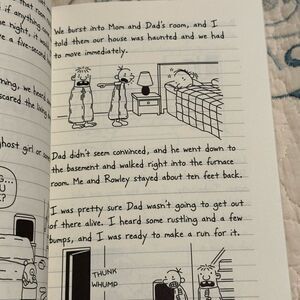 that room
if anything
he night,
e a five-second
ning, we heard
scared the living
ghost girl or
We burst into Mom and Dad's room, and I
told them our house was haunted and we had
to move immediately.
Dad didn't seem convinced, and he went down to
the basement and walked right into the furnace
room. Me and Rowley stayed about ten feet back.
I was pretty sure Dad wasn't going to get out
of there alive. I heard some rustling and a few
bumps, and I was ready to make a run for it.
THUNK
WHUMP